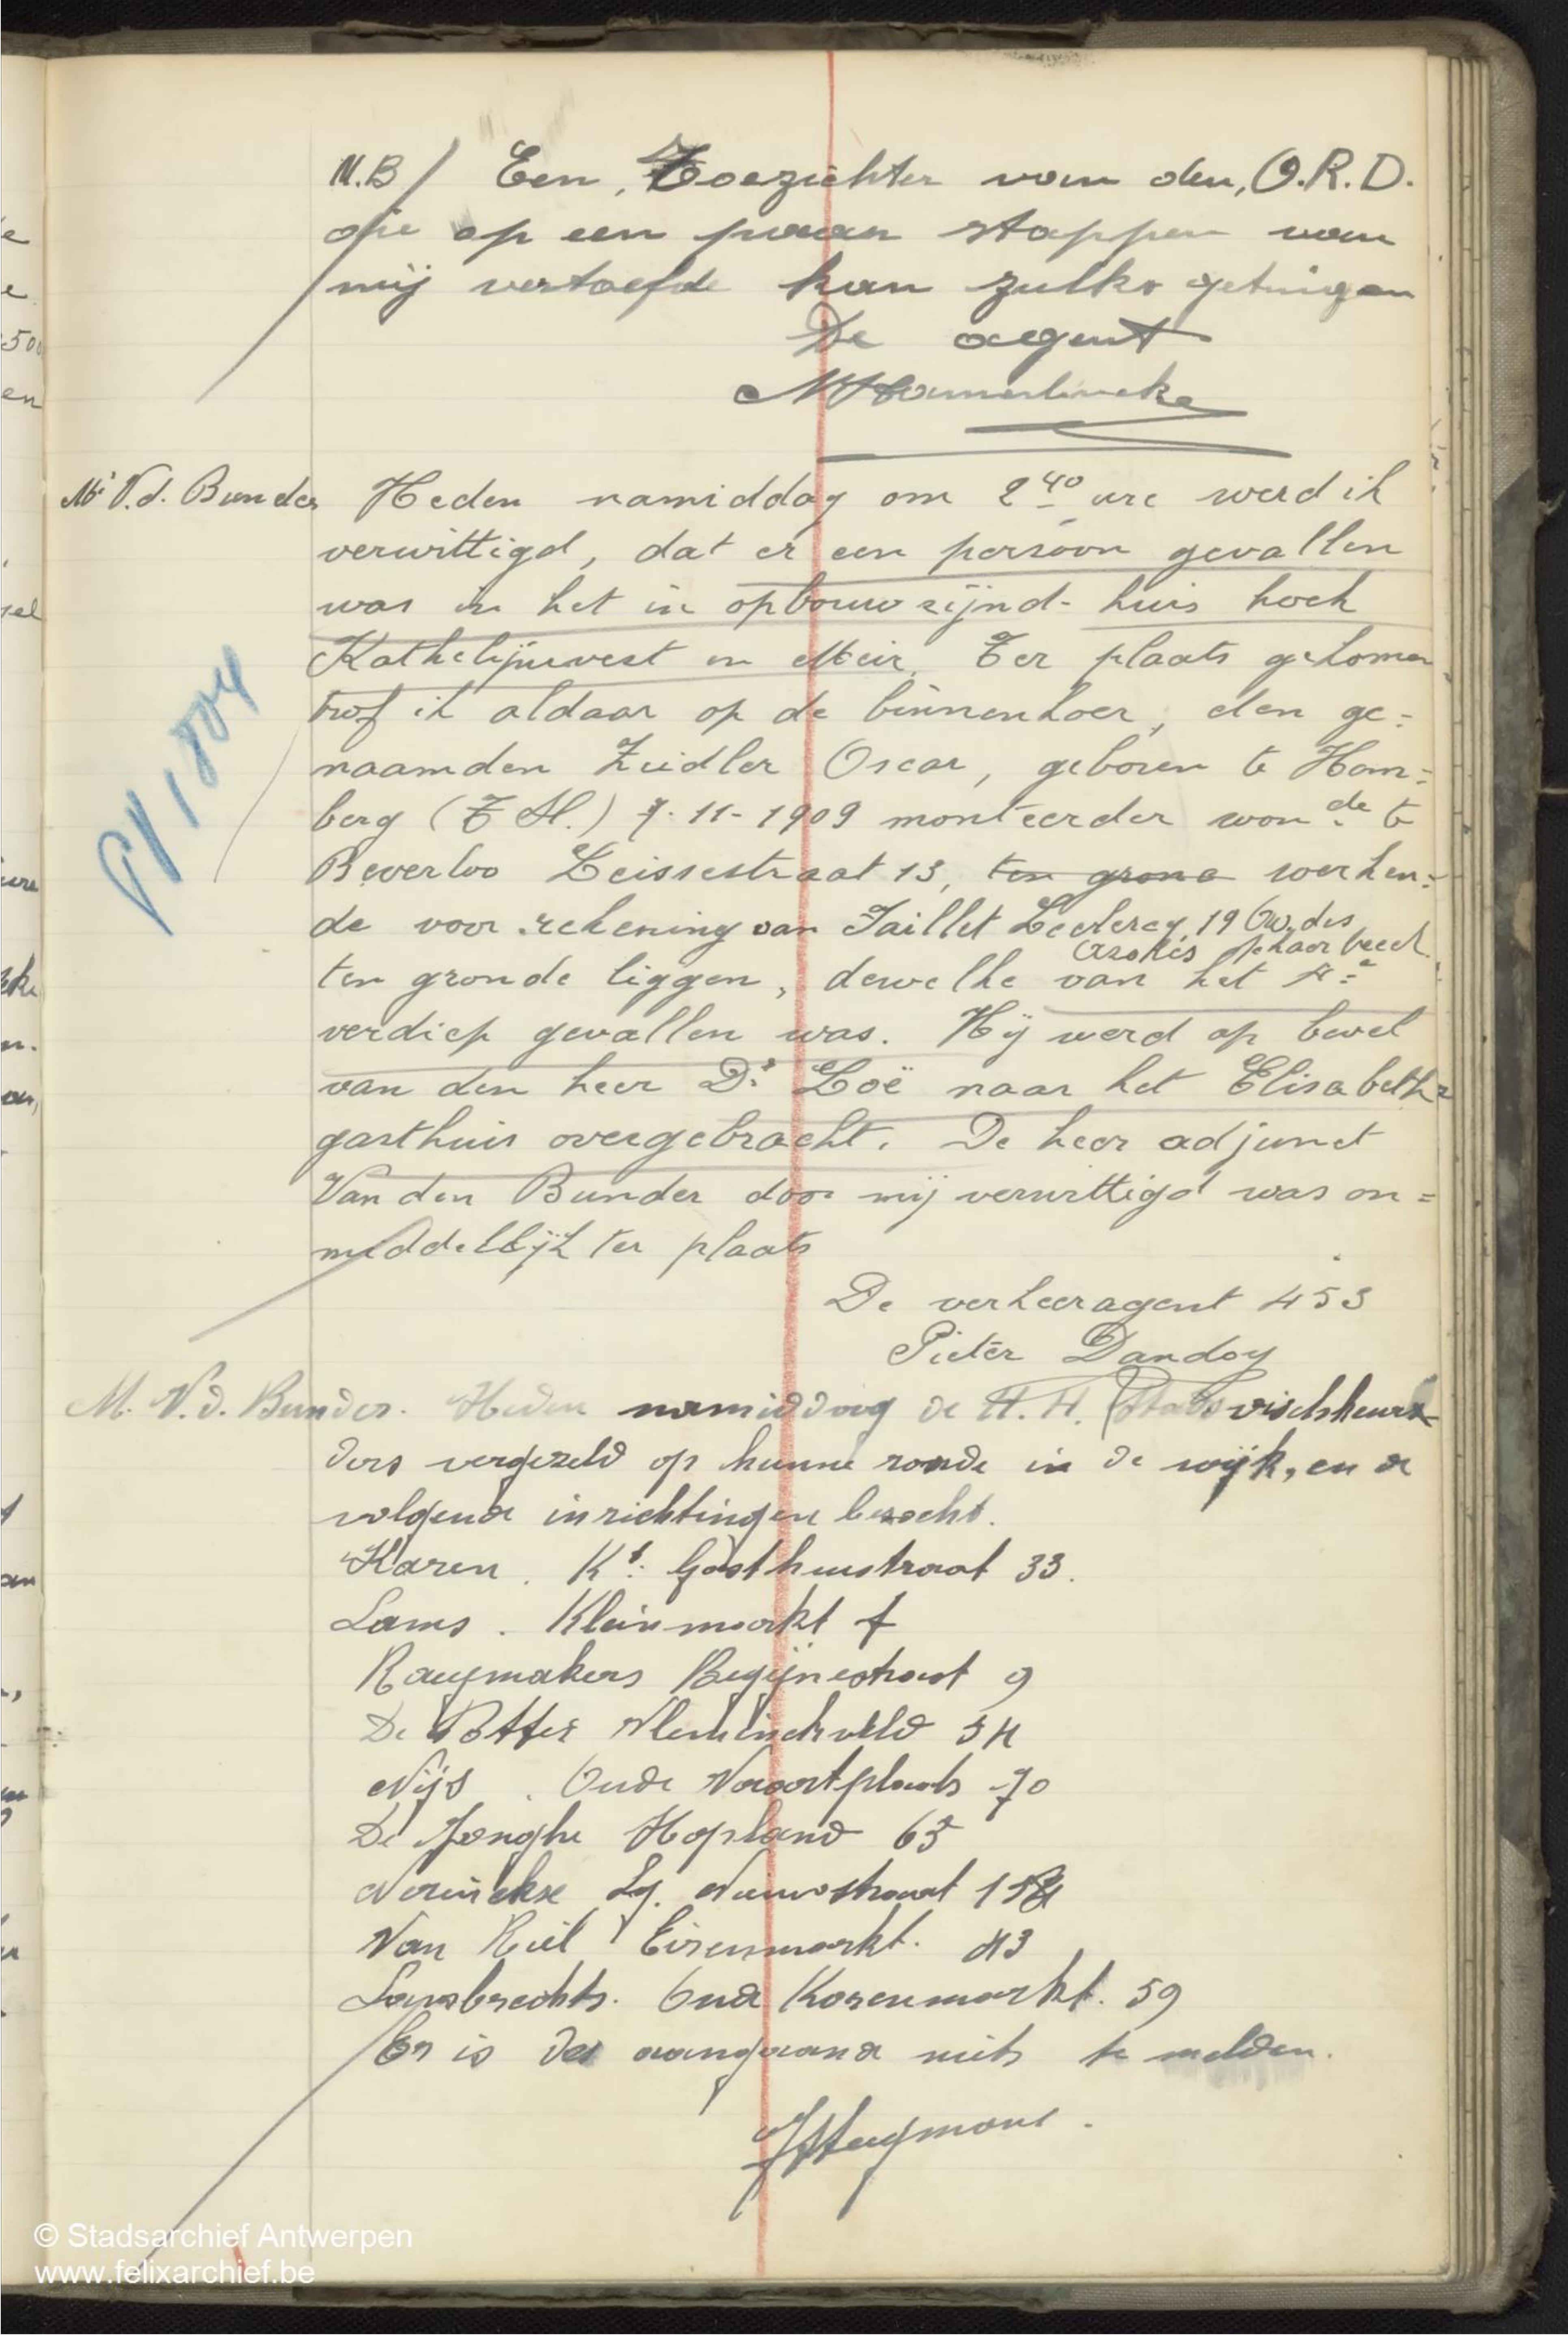 N.B / Een Toezichter van den, O.R.D.
die op een paar stappen van
mij vertoefde kan zulks getuigen
De agent
Mr V.d. Bunder Heden namiddag om 2 40 ure werd ik
verwittigd, dat er een persoon gevallen
was in het in opbouw zijnd- huis hoek
Kathelijnevest en Meir. Ter plaats gekomen
trof ik aldaar op de binnenkoer, den ge=
naamden Zeidler Oscar, geboren te Hom=
berg (T H.) 7-11-1909 monteerder won.de te
Beverloo Leissestraat 13, ten grond werken=
de voor rekening van Jaillet Leclercq, 19 Av. des
Azalés Schaarbeek
ten gronde liggen, dewelke van het 4e
verdiep gevallen was. Hij werd op bevel
van den heer Dr Loë naar het Elisabeth=
gasthuis overgebracht. De heer adjunct
Van den Bunder door mij verwittigd was on=
middellijk ter plaats
PV 1804
De verkeeragent 453
Pieter Dandoy
M. V.d. Bunder. Heden namiddag de H.H. Stadsvischkeur
ders vergezeld op hunne ronde in de wijk, en de
volgende inrichtingen bezocht.
Karen. Kt. Gasthuistraat 33.
Lams. Kleinmarkt
Raeymakers Begijnestraat 9
De Potter Vleminckveld 54
Nijs. Oude Vaartplaats 70
De Jonghe Hopland 63
Nerinckx Lg. Nieuwstraat
Van Riel Eiermarkt. 43
Lambrechts. Oude Korenmarkt. 59
Er is des aangaande niets te melden.
© Stadsarchief Antwerpen
www.felixarchief.be